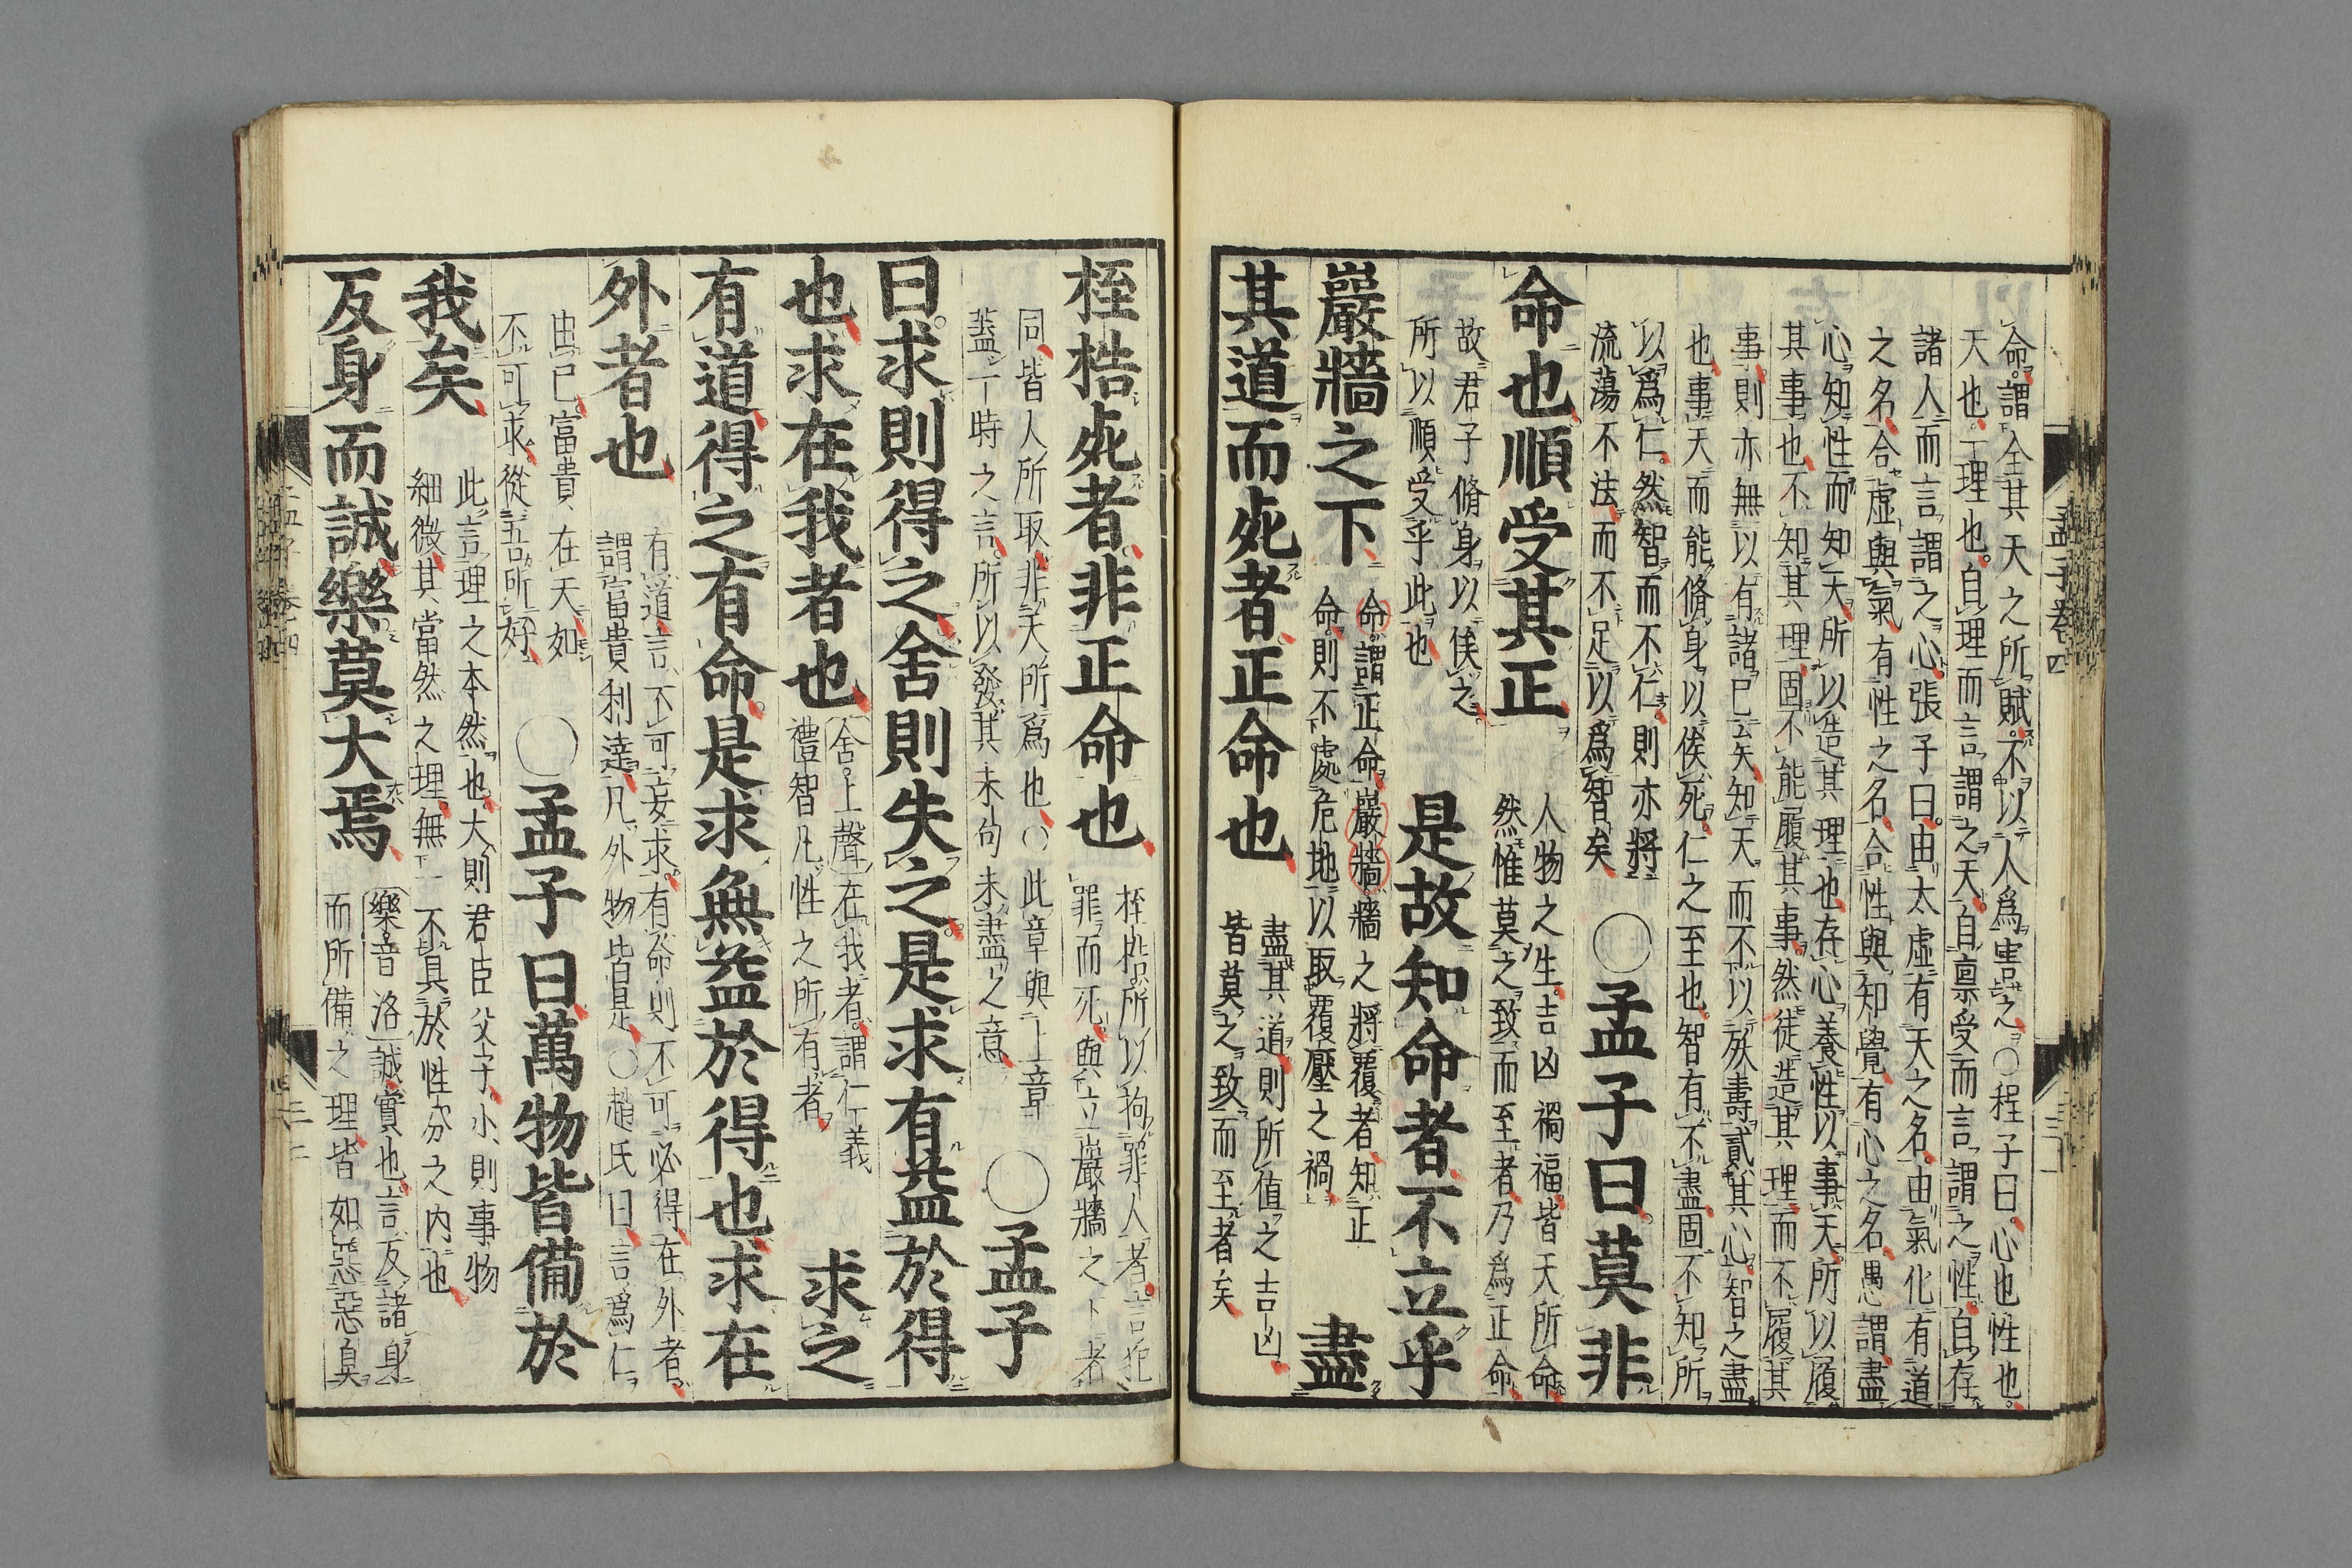 孟子卷四
三一
命謂全其天之所賦不以人爲害之○程子曰心也性也
天也一理也自理而言謂之天自稟受而言謂之性自存
諸人而言謂之心張子曰由太虛有天之名由氣化有道
之名合虛與氣有性之名合性與知覺有心之名愚謂盡
心知性而知天所以造其理也存心養性以事天所以履
其事也不知其理固不能履其事然徒造其理而不履其
事則亦無以有諸已矣知天而不以殀壽貳其心智之盡
也事天而能脩身以俟死仁之至也智有不盡固不知所
以爲仁然智而不仁則亦將
流蕩不法而不足以爲智矣
○孟子曰莫非
命也順受其正
人物之生吉凶禍福皆天所命
然惟莫之致而至者乃爲正命
故君子脩身以俟之
所以順受乎此也
是故知命者不立乎
巖牆之下
命謂正命巖牆牆之將覆者知正
命則不處危地以取覆壓之禍
盡
其道而死者正命也
盡其道則所値之吉凶
皆莫之致而至者矣
桎梏死者非正命也
桎梏所以拘罪人者言犯
罪而死與立巖牆之下者
同皆人所取非天所爲也○此章與上章
蓋一時之言所以發其未句未盡之意
○孟子
曰求則得之舍則失之是求有益於得
也求在我者也
舍上聲在我者謂仁義
禮智凡性之所有者
求之
有道得之有命是求無益於得也求在
外者也
有道言不可妄求有命則不可必得在外者
謂富貴利達凡外物皆是○趙氏曰言爲仁
由已富貴在天如
不可求從吾所好
○孟子曰萬物皆備於
我矣
此言理之本然也大則君臣父子小則事物
細微其當然之理無一不具於性分之内也
反身而誠樂莫大焉
樂音洛誠實也言反諸身
而所備之理皆如惡惡臭
孟子卷四
三二